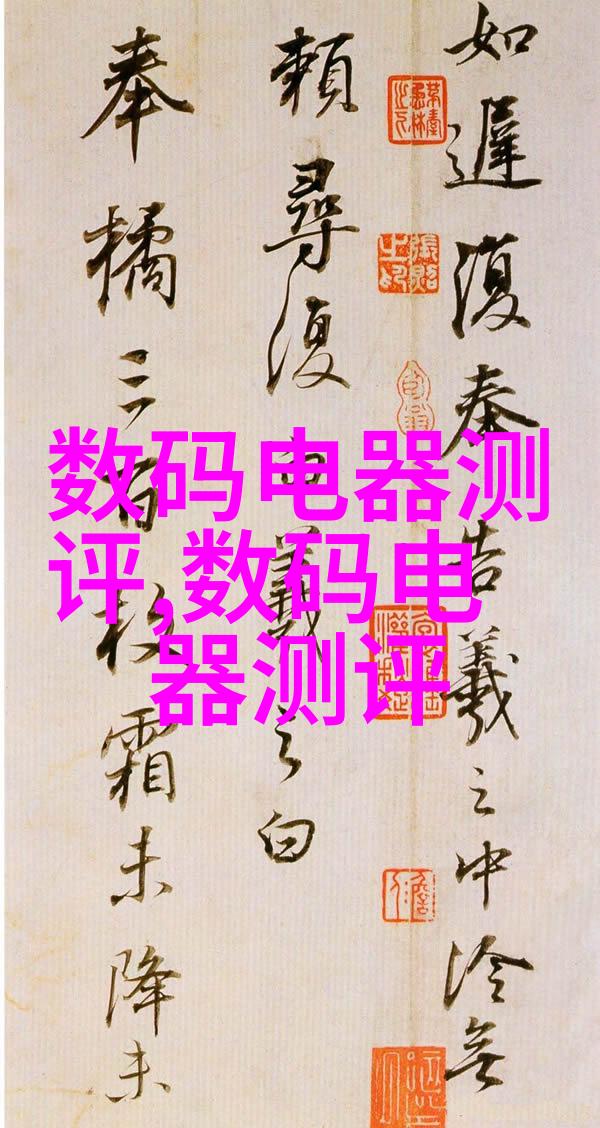 如遲復奉告羲之中冷無
頼尋復羲之白
奉橘三百枚霜未降未
数码电器测
评,数码电
器测评